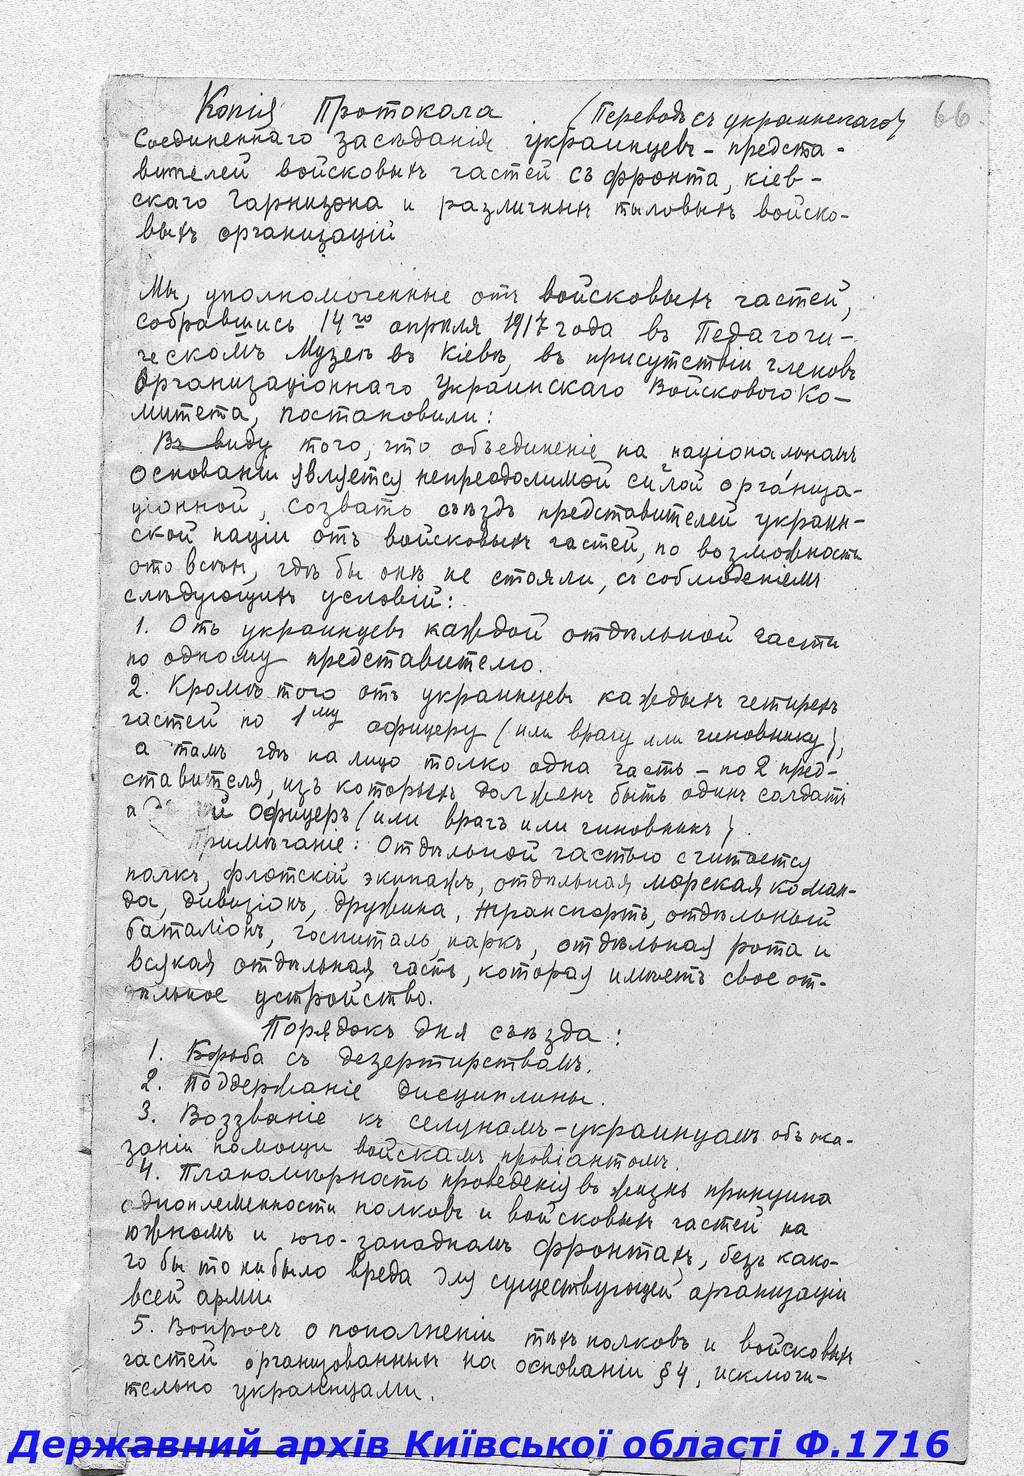 Копія Протокола (Переводъ съ украинскаго) 66.
Соединеннаго засѣданія украинцевъ - предста-
вителей войсковыхъ частей съ фронта, кіев-
скаго Гарнизона и различныхъ тыловыхъ войско-
выхъ организацій
Мы, уполномоченные отъ войсковыхъ частей,
собравшись 14го апрѣля 1917 года въ Педагоги-
ческомъ Музеѣ въ Кіевѣ, въ присутствіи членовъ
Организаціоннаго Украинскаго Войскового Ко-
митета, постановили:
Въ виду того, что объединеніе на національномъ
основаніи является непреодолимой силой организа-
ціонной, созвать съѣздъ представителей украин-
ской націи отъ войсковыхъ частей, по возможности
ото всѣхъ, гдѣ бы онѣ не стояли, съ соблюденіемъ
слѣдующихъ условій:
1. Отъ украинцевъ каждой отдѣльной части
по одному представителю.
2. Кромѣ того отъ украинцевъ каждыхъ четирехъ
частей по 1му офицеру (или врачу или чиновнику),
а тамъ гдѣ на лицо только одна часть - по 2 пред-
ставителя, изъ которыхъ долженъ быть одинъ солдатъ
а офицеръ (или врачъ или чиновникъ).
Примѣчаніе: Отдѣльной частью считается
полкъ, флотскій экипажъ, отдѣльная морская коман-
да, дивизіонъ, дружина, транспортъ, отдѣльный
баталіонъ, госпиталь, паркъ, отдѣльная рота и
всякая отдѣльная часть, которая имѣетъ свое от-
дѣльное устройство.
Порядокъ дня съѣзда:
1. Борьба съ дезертирствамъ.
2. Поддержаніе дисциплины.
3. Воззваніе къ селунамъ-украинцамъ объ ока-
заніи помощи войскамъ провіантомъ.
4. Планомѣрность проведенія въ жизнь принципа
одноплеменности полковъ и войсковыхъ частей на
южномъ и юго-западномъ фронтахъ, безъ како-
го бы то ни было вреда для существующей организаціи
всей арміи
5. Вопросъ о пополненіи тѣхъ полковъ и войсковыхъ
частей организованныхъ на основаніи § 4, исклюги-
тельно украинцами.
Державний архів Київської області Ф.1716